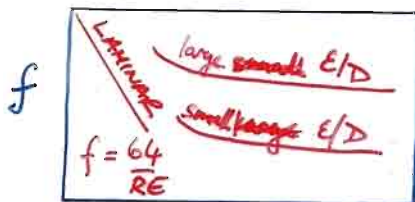 f
LAMINAR
large small E/D
small large E/D
f = 64
RE